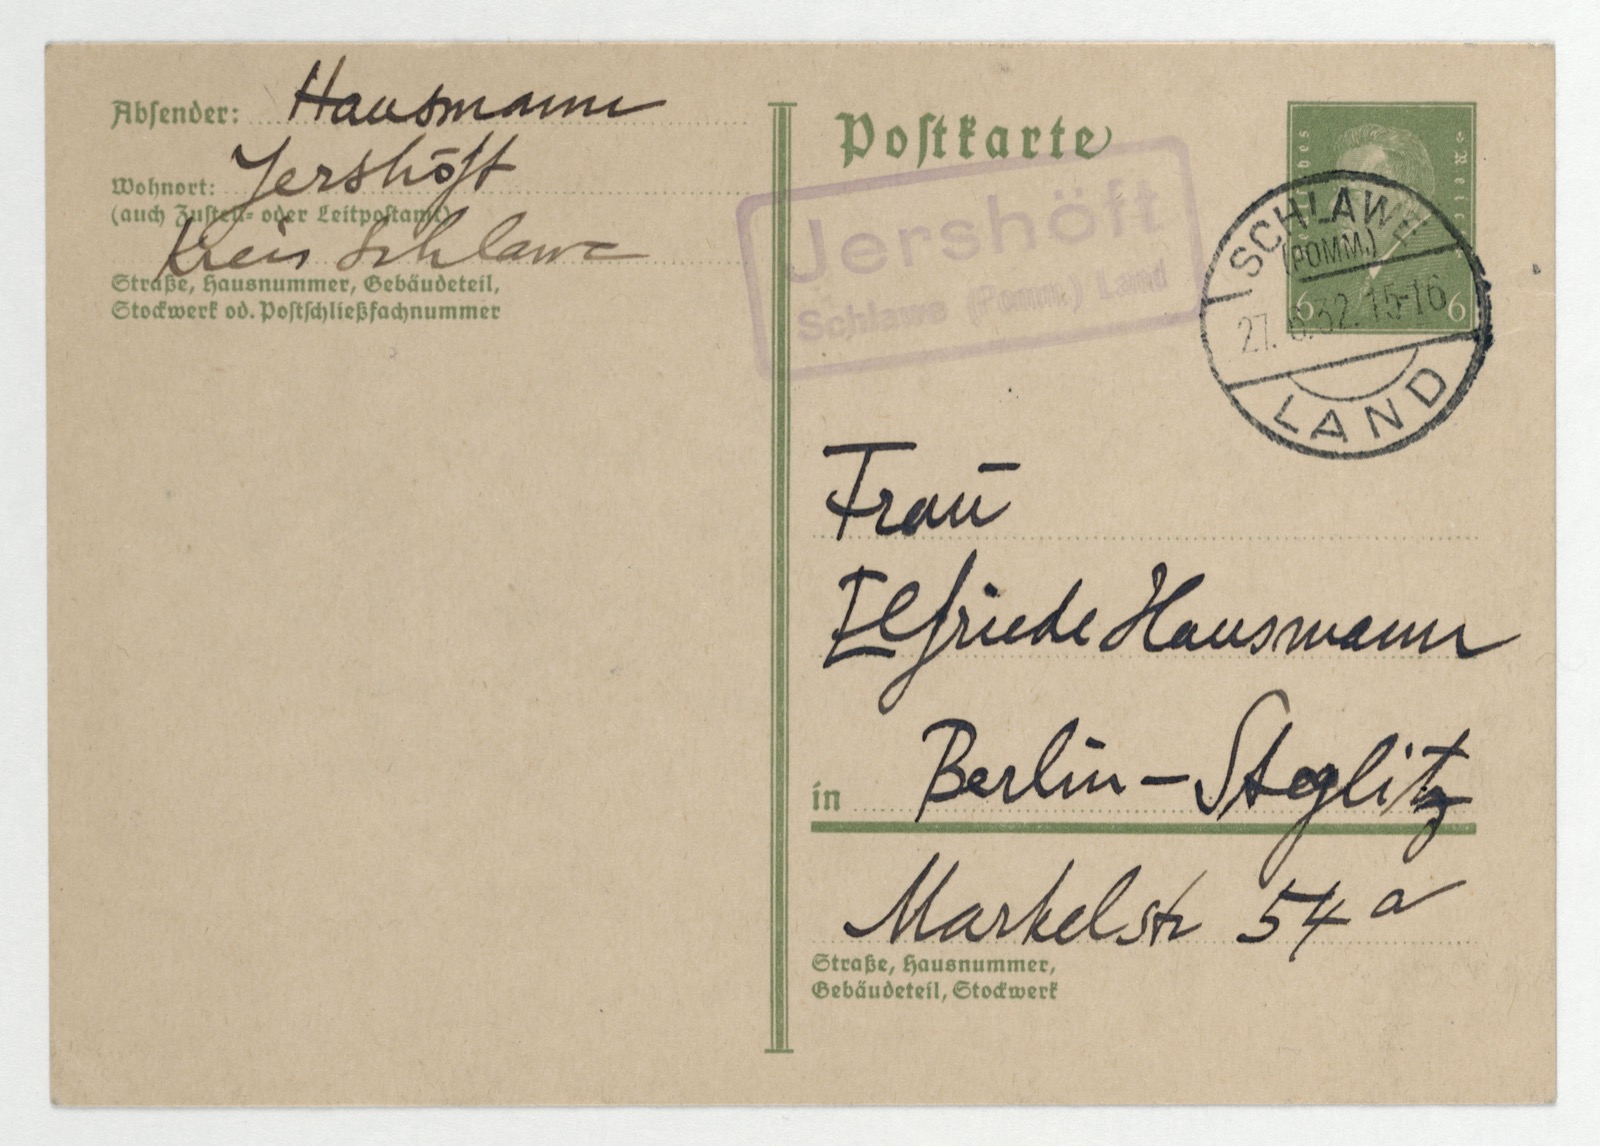 Absender: Hausmann
Wohnort: Jershöft
(auch Zustell- oder Leitpostamt)
Kreis Schlawe
Straße, Hausnummer, Gebäudeteil,
Stockwerk od. Postschließfachnummer
Postkarte
Jershöft
Schlawe (Pomm.) Land
Deutsches Reich
6 6
SCHLAWE
(POMM.)
27. 6.32. 15-16
LAND
Frau
Elfriede Hausmann
in Berlin-Steglitz
Markelstr 54a
Straße, Hausnummer,
Gebäudeteil, Stockwerk